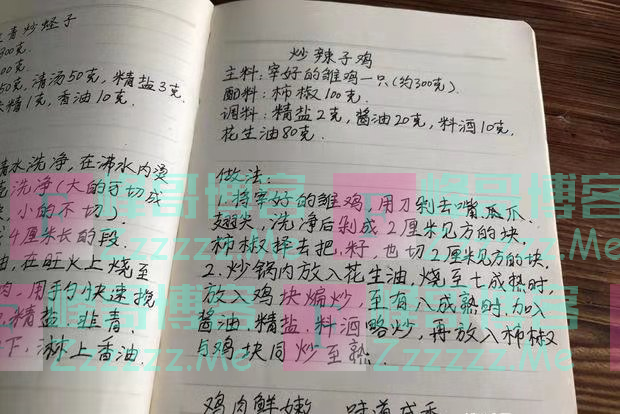 韭青炒蛏子
300克.
00克.
50克, 清汤50克, 精盐3克.
味精1克, 香油10克.
清水洗净, 在沸水内烫
洗净(大的可切成
小的不切).
4厘米长的段.
油, 在旺火上烧至
肉, 用手勺快速搅
精盐. 韭青.
下, 淋上香油.
炒辣子鸡
主料: 宰好的雏鸡一只(约300克).
配料: 柿椒100克.
调料: 精盐2克, 酱油20克, 料酒10克,
花生油80克.
做法:
1. 将宰好的雏鸡, 用刀剁去嘴瓜爪、
翅尖, 洗净后剁成2厘米见方的块.
柿椒择去把, 籽, 也切2厘米见方的块.
2. 炒锅内放入花生油, 烧至七成热时,
放入鸡块煸炒, 至有八成熟时, 加入
酱油, 精盐, 料酒略炒, 再放入柿椒
与鸡块同炒至熟.
鸡肉鲜嫩 味道咸香
峰哥博客
Zzzzzz.Me
峰哥博客
Zzzzzz.Me
峰哥博客
Zzzzzz.Me
峰哥博客
Zzzzzz.Me